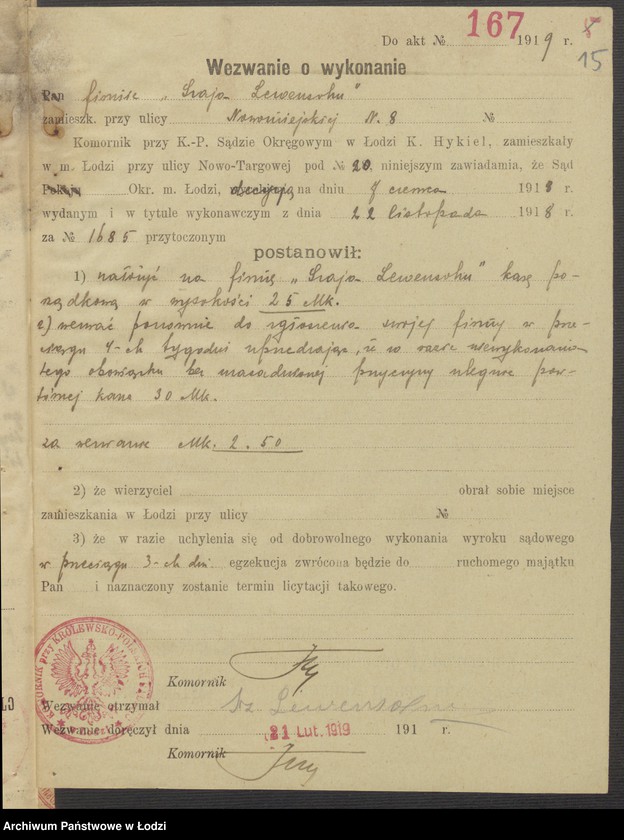 Do akt № 167 1919 r. 8
15
Wezwanie o wykonanie
Pan firmie „Szaja Lewensohn"
zamieszk. przy ulicy Nowomiejskiej N. 8 №
Komornik przy K.-P. Sądzie Okręgowym w Łodzi K. Hykiel, zamieszkały
w m. Łodzi przy ulicy Nowo-Targowej pod № 20, niniejszym zawiadamia, że Sąd
Pokoju Okr. m. Łodzi, decyzją na dniu czerwca 1918 r.
wydanym i w tytule wykonawczym z dnia 22 listopada 1918 r.
za № 1685 przytoczonym
postanowił:
1) nałożyć na firmę „Szaja Lewensohn" karę po-
rządkową w wysokości 25 Mk.
2) wezwać ponownie do zgłoszenia swojej firmy w prze-
ciągu 4-ch tygodni uprzedzając, iż w razie niewykonania
tego obowiązku bez uzasadnionej przyczyny ulegnie pow-
tórnej karze 30 Mk.
za wezwanie Mk. 2.50
2) że wierzyciel obrał sobie miejsce
zamieszkania w Łodzi przy ulicy №
3) że w razie uchylenia się od dobrowolnego wykonania wyroku sądowego
w przeciągu 3-ch dni egzekucja zwrócona będzie do ruchomego majątku
Pan i naznaczony zostanie termin licytacji takowego.
KOMORNIK przy KRÓLEWSKO-POLSKIM
Komornik
Wezwanie otrzymał Sz. Lewensohn
Wezwanie doręczył dnia 21 Lut. 1919 191 r.
Komornik
Archiwum Państwowe w Łodzi